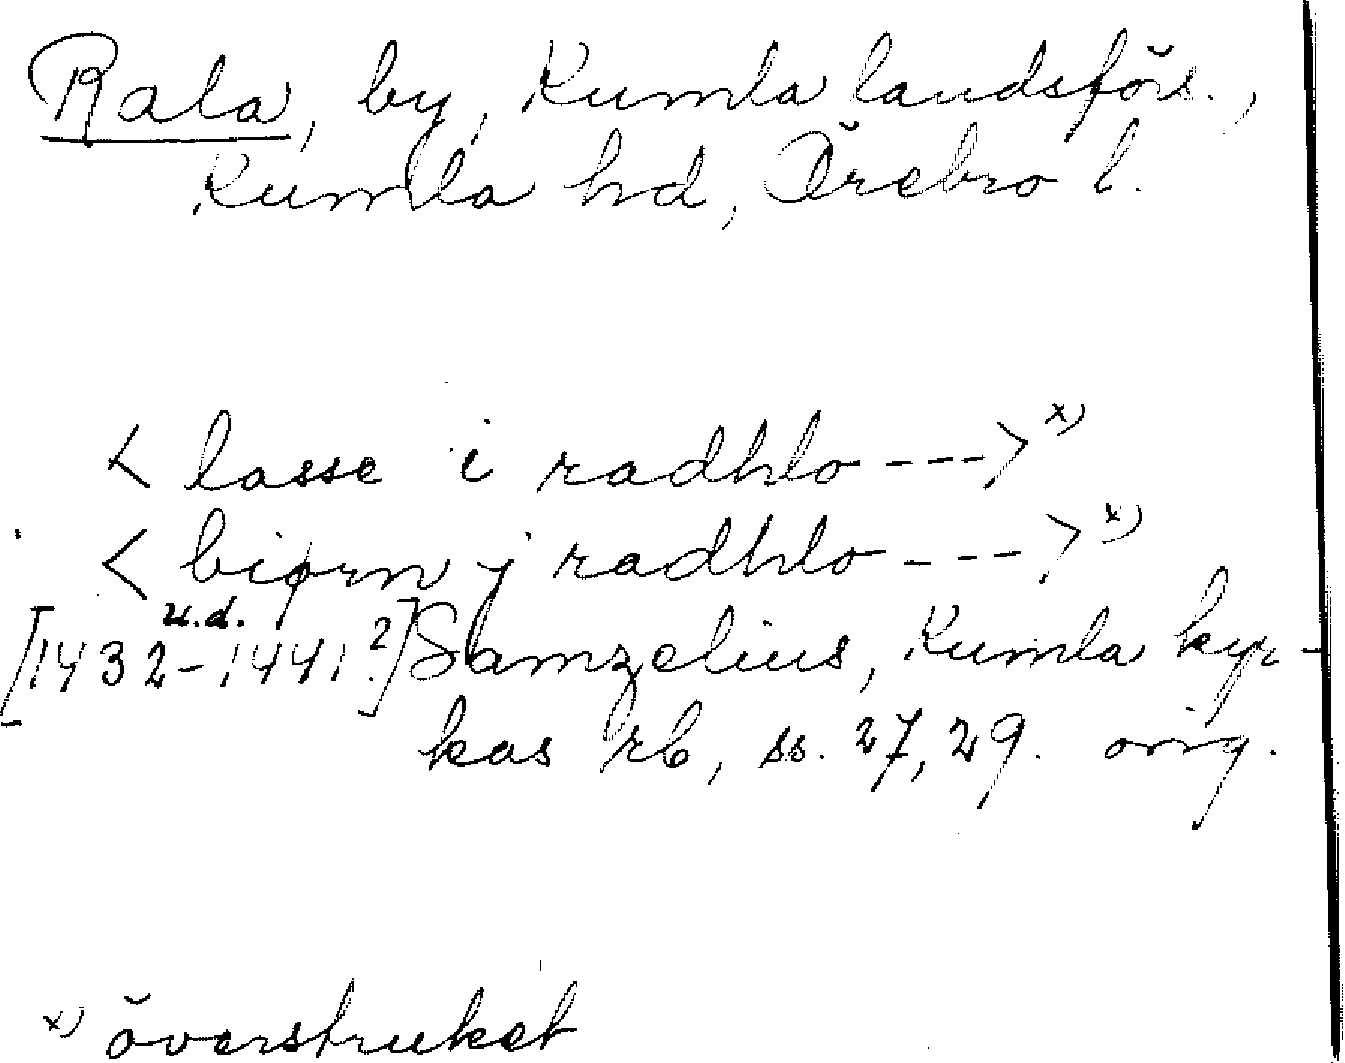 Rala, by, Kumla landsförs.,
Kumla hd, Örebro l.
< lasse i radhlo --->x)
< biørn j radhlo --->x)
u.d.
[1432-1441.?] Samzelius, Kumla kyr-
kas rb, ss. 27, 29. orig.
x) överstruket